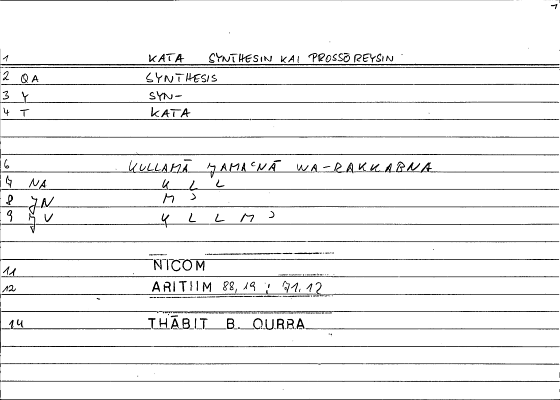 1 KATA SYNTHESIN KAI PROSSŌREYSIN
2 QA SYNTHESIS
3 Y SYN-
4 T KATA
6 KULLAMĀ ǦAMAʿNĀ WA-RAKKABNA
7 NA K L L
8 ǦN M ʾ
9 ǦV K L L M ʾ
11 NICOM
12 ARITIIM 88,19 ; 71,12
14 THĀBIT B. QURRA